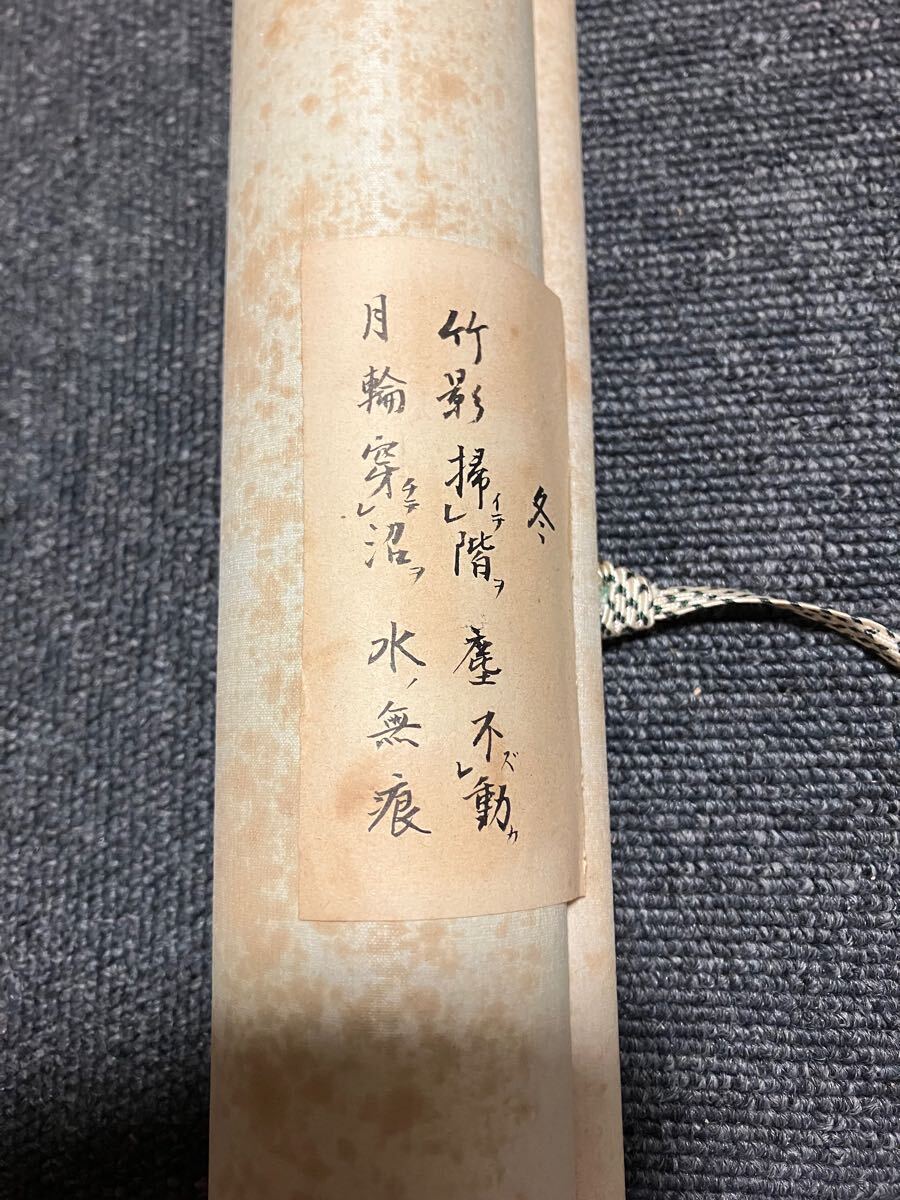 冬
竹影掃イテレ階ヲ塵不ズレ動カ
月輪穿チテレ沼ヲ水ノ無痕